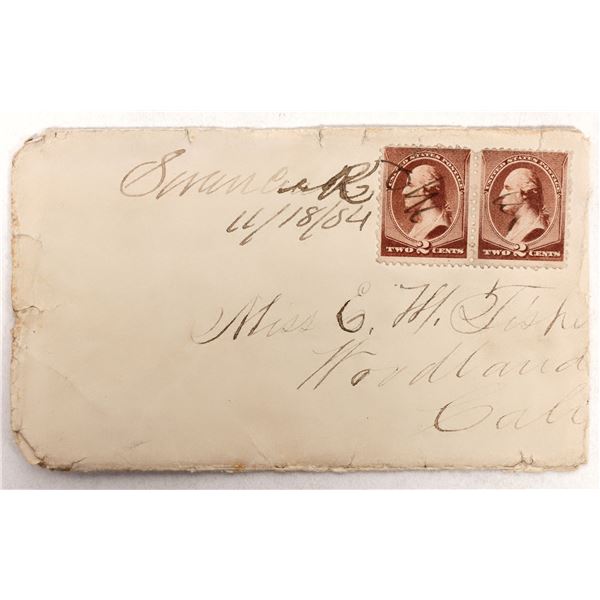 UNITED STATES POSTAGE
TWO 2 CENTS
UNITED STATES POSTAGE
TWO 2 CENTS
11/18/84
Miss E. M. Fishe
Woodland
Cal